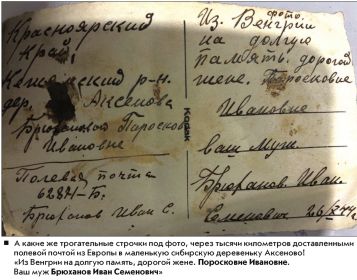 Красноярский
край,
Кежемский р-н.
дер. Аксенова
Брюхановой Пароскове
Ивановне
Полевая почта
628Н-Б.
Брюханов Иван С.
Kodak
фото
Из Венгрии
на долгую
память, дорогой
жене. Пароскове
Ивановне
ваш муж.
Брюханов. Иван.
Семенович
А какие же трогательные строчки под фото, через тысячи километров доставленными
полевой почтой из Европы в маленькую сибирскую деревеньку Аксеново!
«Из Венгрии на долгую память, дорогой жене. Поросковие Ивановне.
Ваш муж Брюханов Иван Семенович»